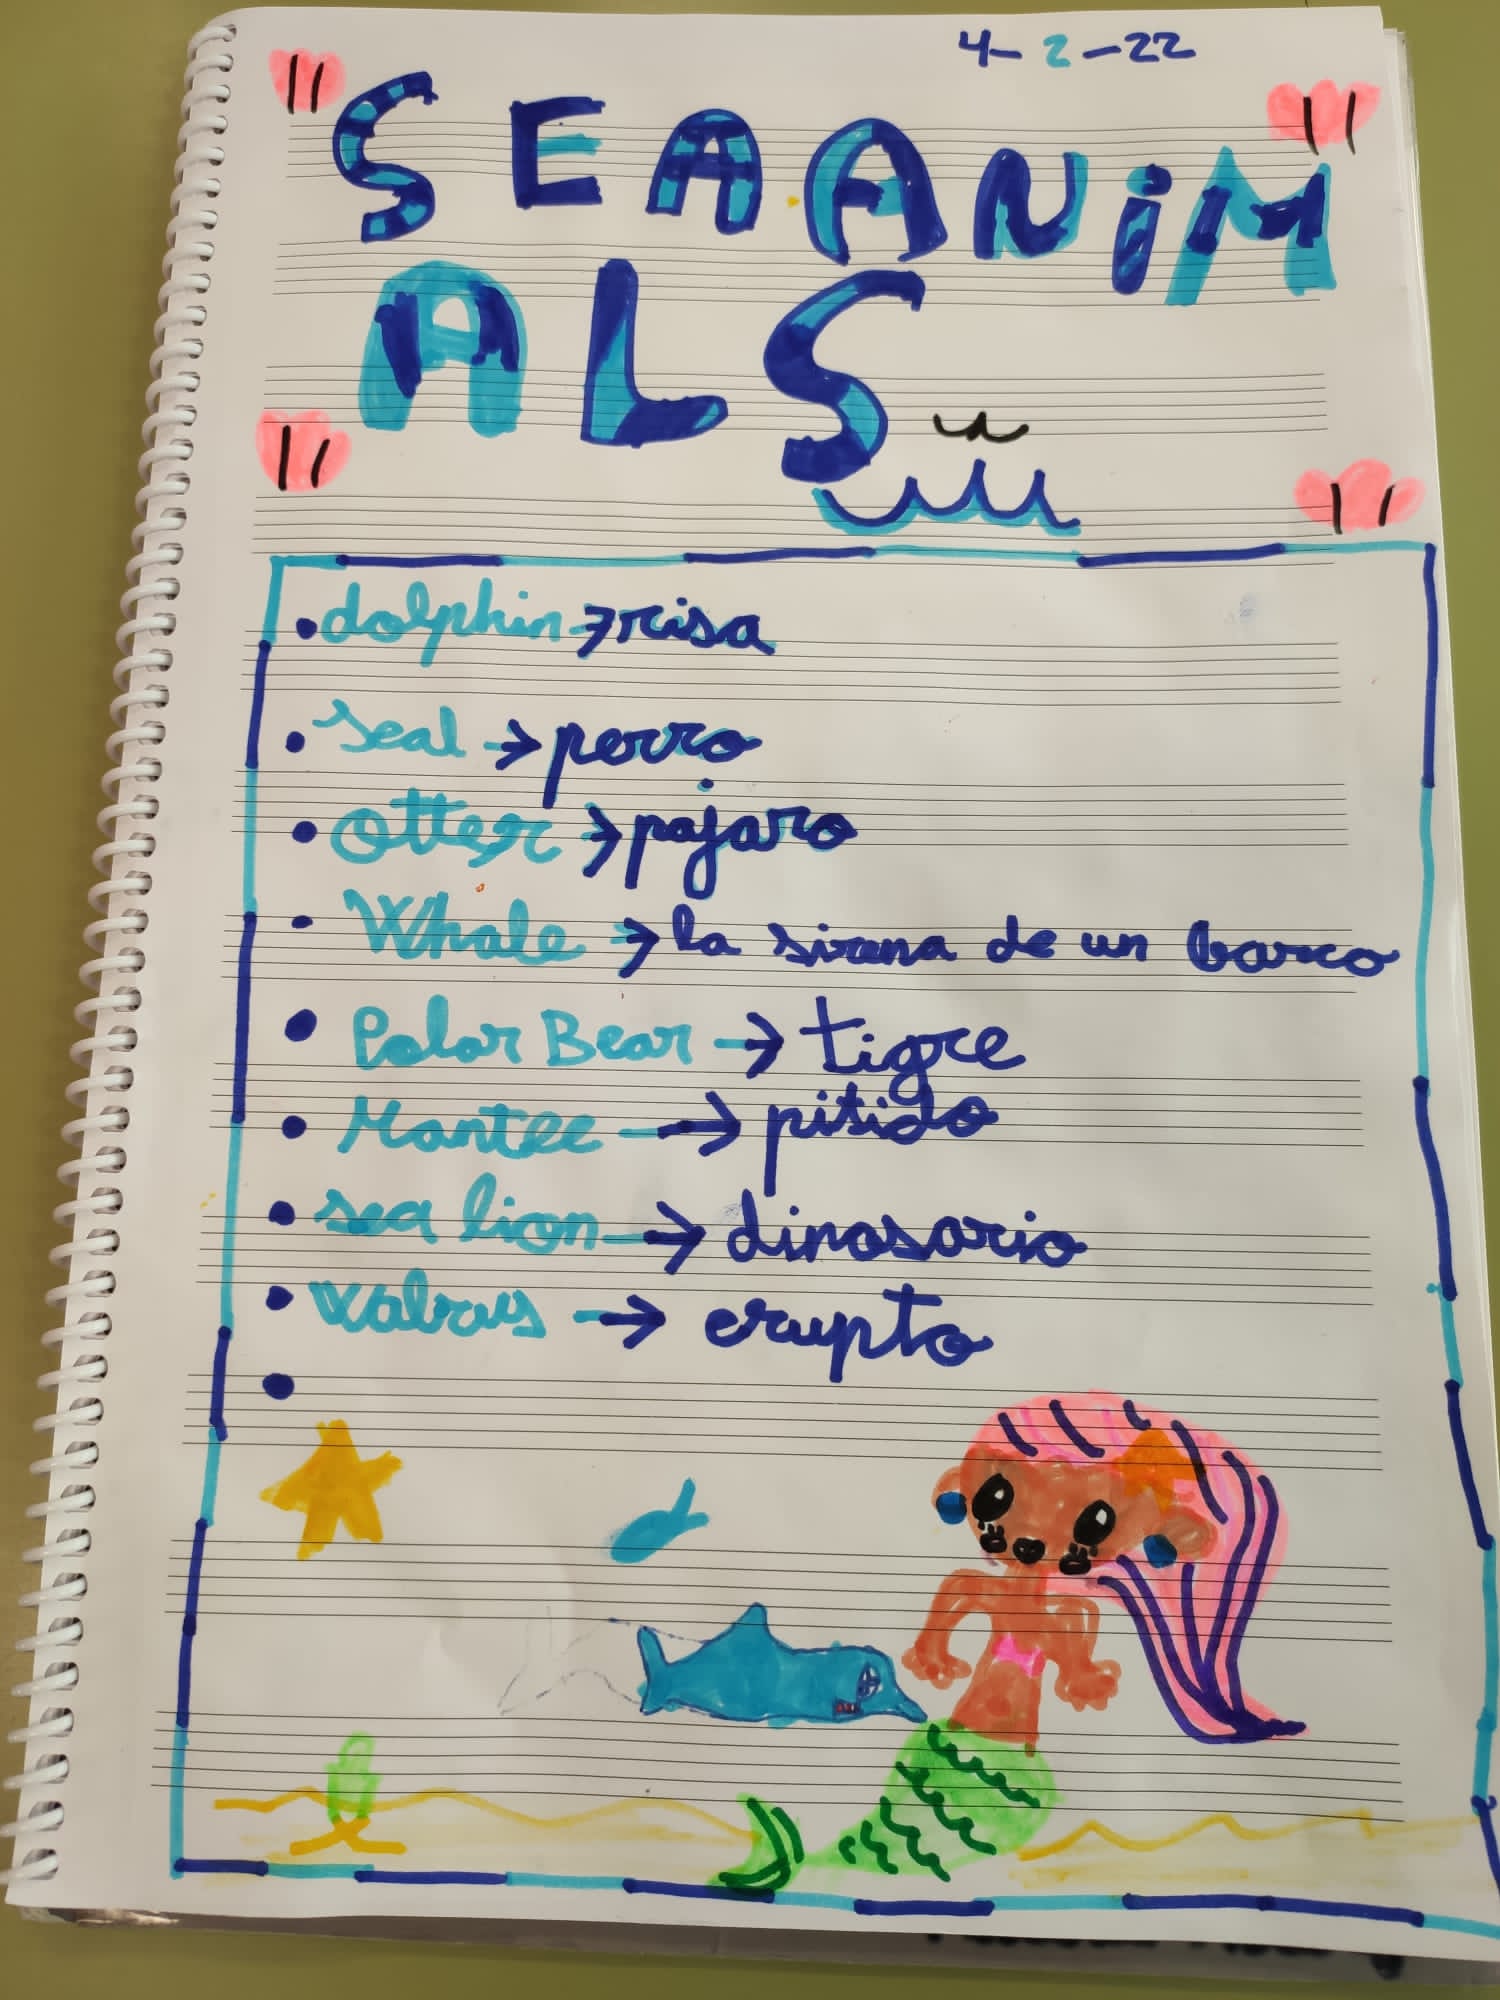 4-2-22
SEA ANIM
ALS
• dolphin → risa
• seal → perro
• Otter → pajaro
• Whale → la sirena de un barco
• Polar Bear → tigre
• Mantee → pitido
• sea lion → dinosario
• Walrus → erupto
•